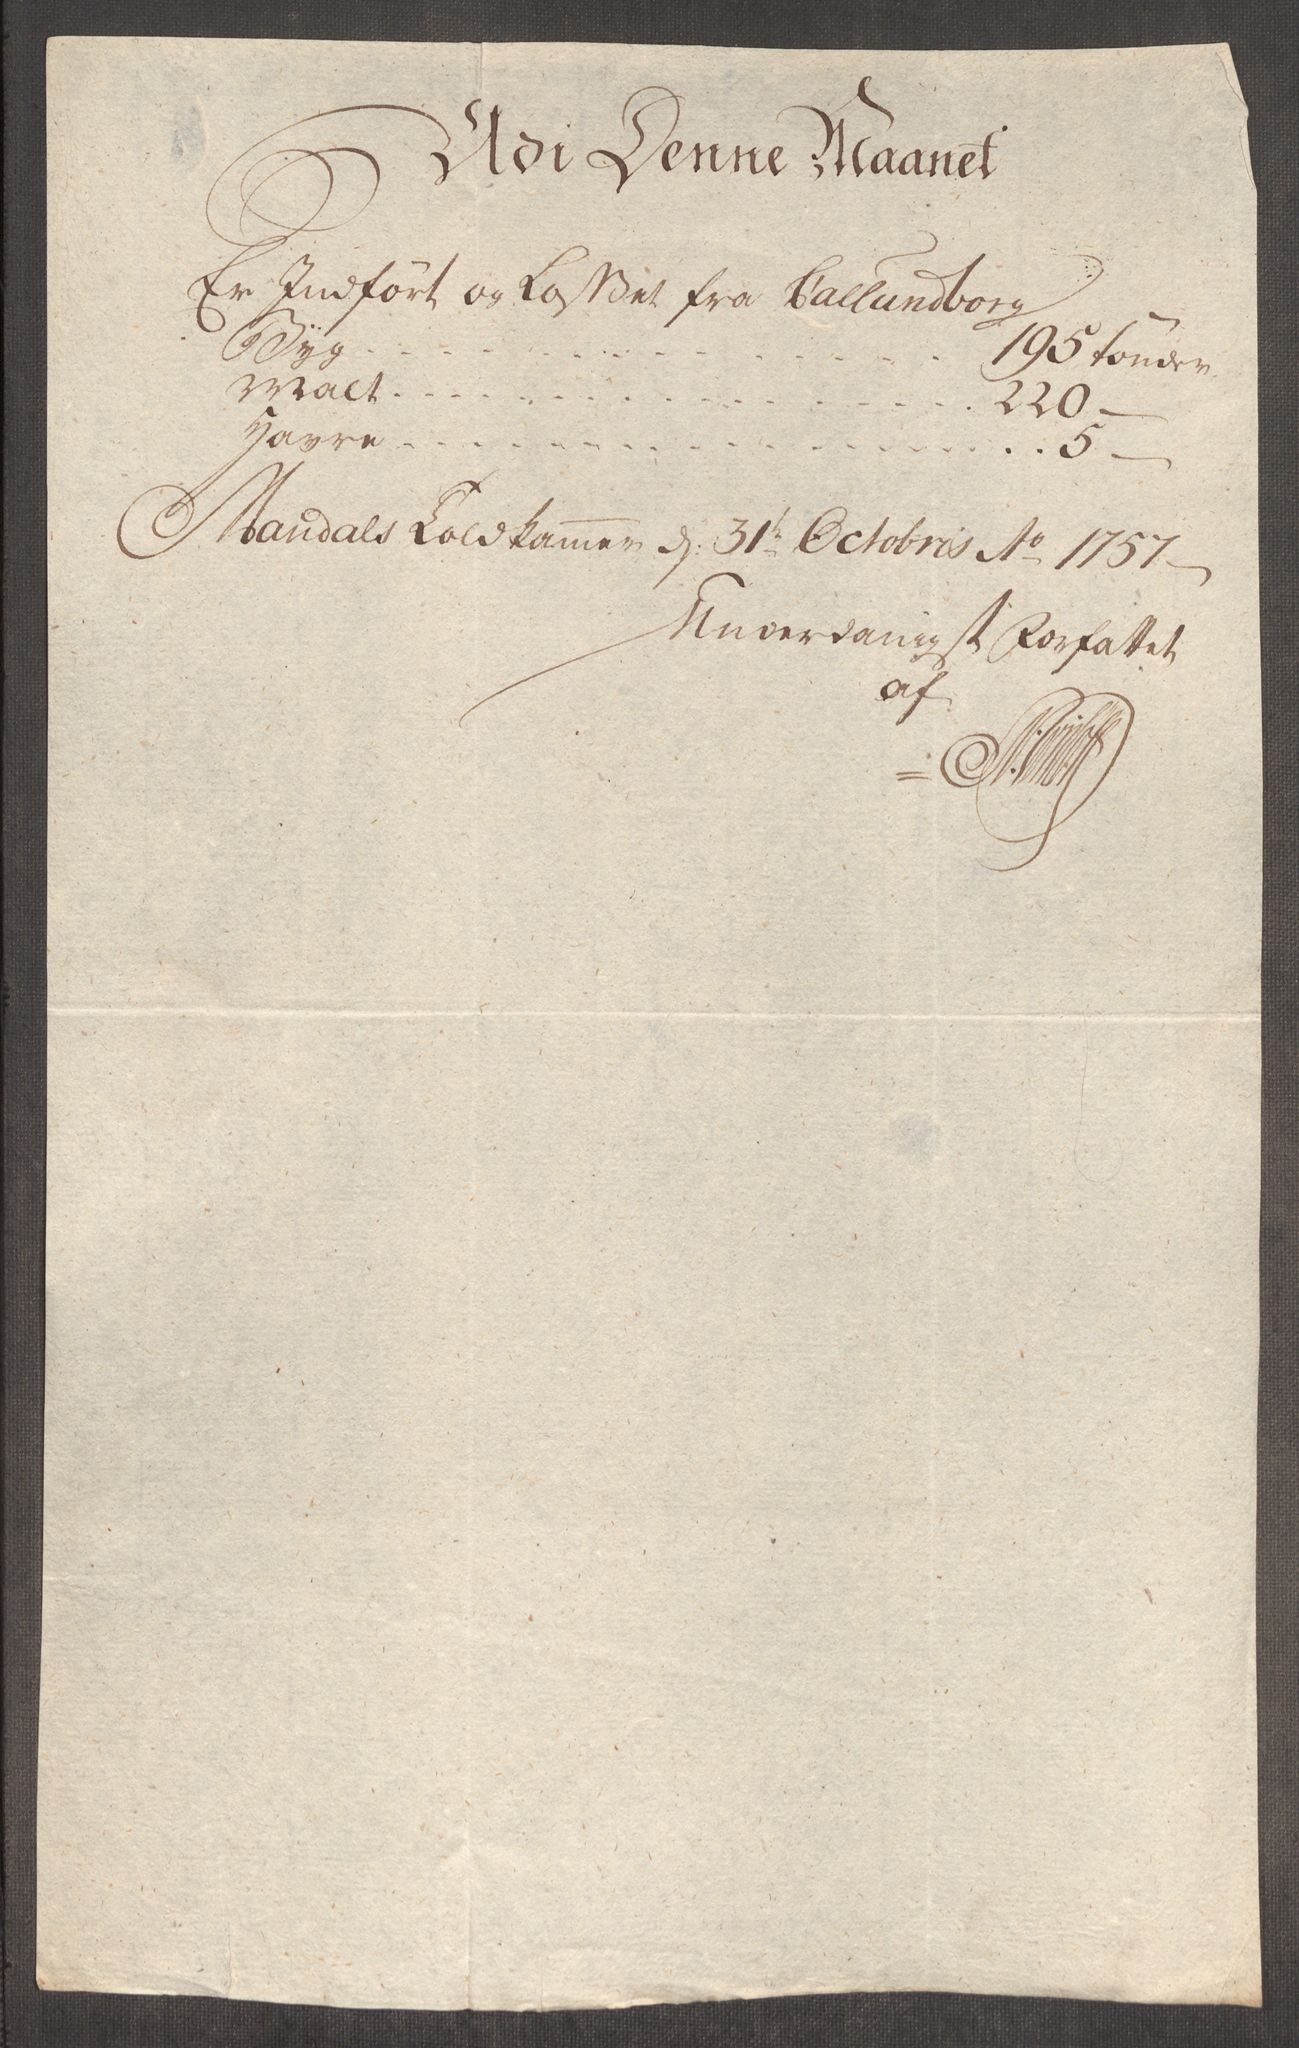 Udi Denne Maanet
Er Indført og Losset fra Callundborg
Byg - - - - - - - - - - 195 tønder
Malt - - - - - - - - - - 220 —
Havre - - - - - - - - - - 5 —
Mandals Toldkammer d: 31te Octobris Ao 1757
Underdanigst Forfattet
af